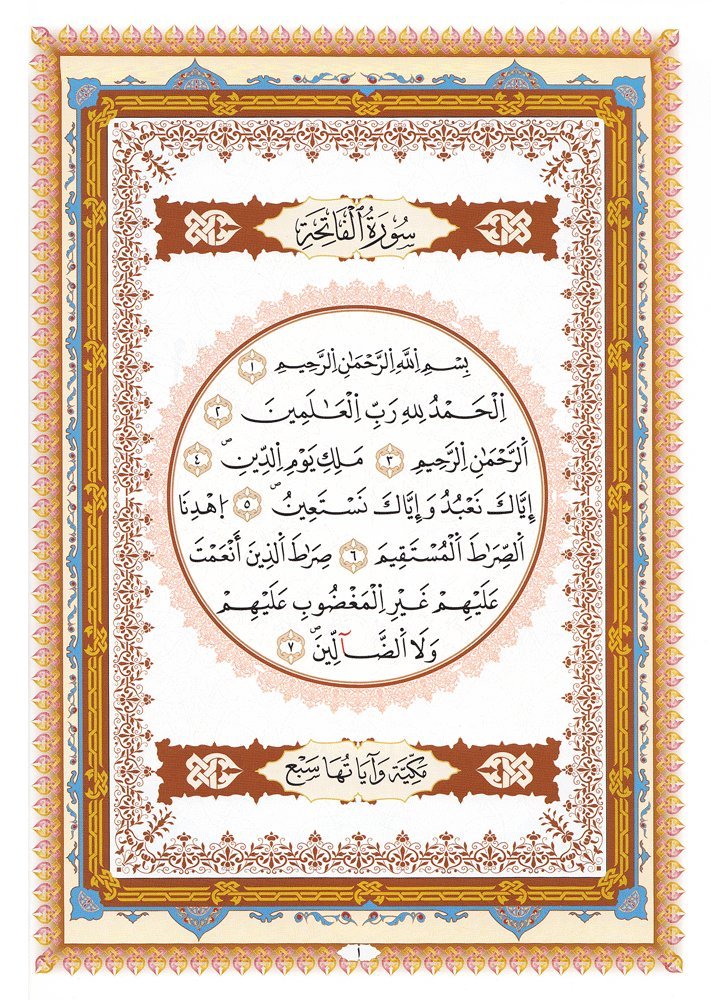 سُورَةُ ٱلْفَاتِحَةِ
بِسْمِ اِ۬للَّهِ اِ۬لرَّحْمَٰنِ اِ۬لرَّحِيمِ ١
اِ۬لْحَمْدُ لِلهِ رَبِّ اِ۬لْعَٰلَمِينَ ٢
اَ۬لرَّحْمَٰنِ اِ۬لرَّحِيمِ ٣ مَلِكِ يَوْمِ اِ۬لدِّينِ ۖ ٤
إِيَّاكَ نَعْبُدُ وَإِيَّاكَ نَسْتَعِينُ ۖ ٥ اِ۪هْدِنَا
اَ۬لصِّرَٰطَ اَ۬لْمُسْتَقِيمَ ٦ صِرَٰطَ اَ۬لذِينَ أَنْعَمْتَ
عَلَيْهِمْ غَيْرِ اِ۬لْمَغْضُوبِ عَلَيْهِمْ
وَلَا اَ۬لضَّآلِّينَ ۖ ٧
مَكِّيَّة وَآيَاتُهَا سَبْع
١